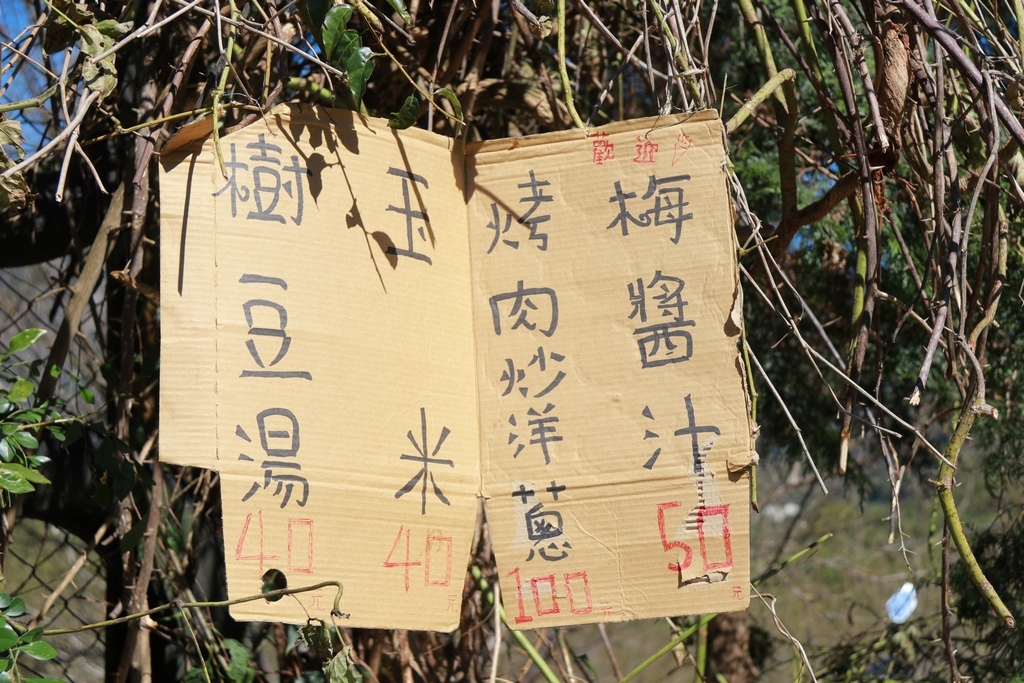 歡迎
梅醬汁
50元
烤肉炒洋蔥
100元
玉米
40元
樹豆湯
40元